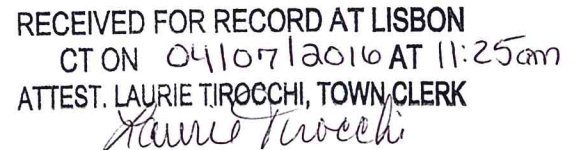 RECEIVED FOR RECORD AT LISBON
CT ON 04/07/2016 AT 11:25am
ATTEST. LAURIE TIROCCHI, TOWN CLERK
Laurie Tirocchi